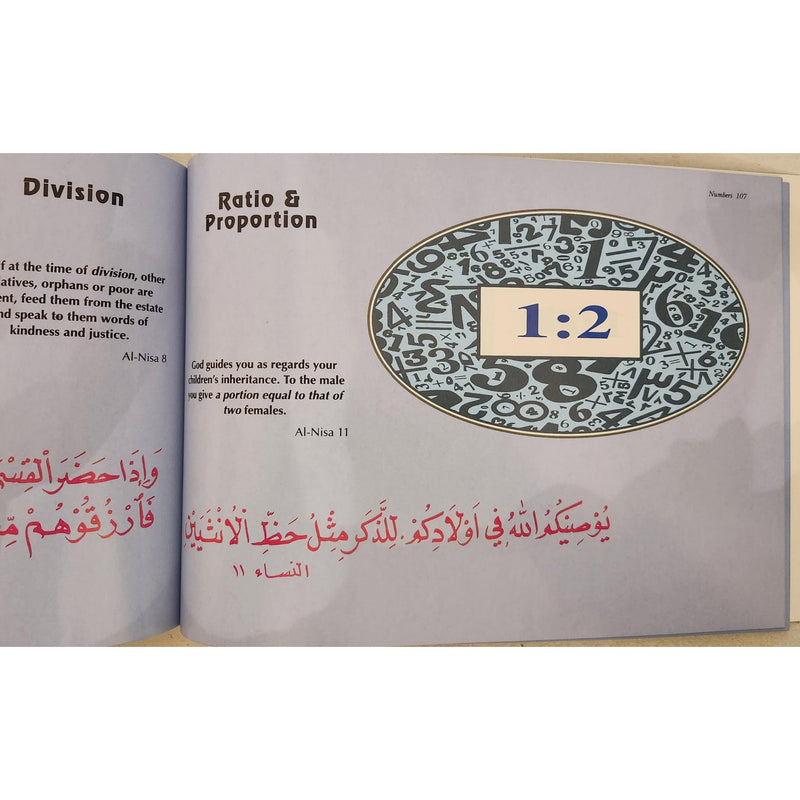 Division
f at the time of division, other
atives, orphans or poor are
ent, feed them from the estate
nd speak to them words of
kindness and justice.
Al-Nisa 8
وَإِذَا حَضَرَ ٱلْقِسْمَ
فَٱرْزُقُوْهُمْ مِّ
Numbers 107
Ratio &
Proportion
1:2
God guides you as regards your
children's inheritance. To the male
you give a portion equal to that of
two females.
Al-Nisa 11
يُوْصِيْكُمُ اللّٰهُ فِي أَوْلَادِكُمْ. لِلذَّكَرِ مِثْلُ حَظِّ الْأُنْثَيَيْنِ
النساء ١١